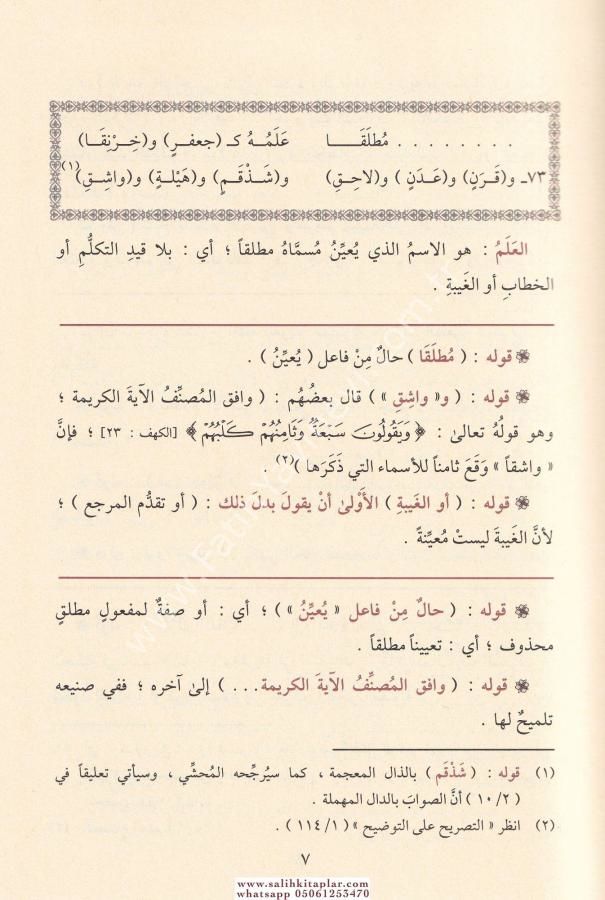 . . . . . . . . مُطلَقَـــــا عَلَمُـهُ كـ (جعفـرٍ) و(خِـرْنِقَـا)
٧٣ـ و(قَـرَنٍ) و(عَـدَنٍ ) و(لاحِـقِ) و(شَـذْقَـمٍ) و(هَيْلـةٍ) و(واشِـقِ)(١)
العَلَمُ : هو الاسمُ الذي يُعيِّنُ مُسمَّاهُ مطلقاً ؛ أي : بلا قيدِ التكلُّمِ أو
الخطابِ أو الغَيبةِ .
❀ قوله : ( مُطلَقَا ) حالٌ مِنْ فاعل ( يُعيِّنُ ) .
❀ قوله : ( و« واشِقِ » ) قال بعضُهُم : ( وافق المُصنِّفُ الآيةَ الكريمة ؛
وهو قولُهُ تعالىٰ : ﴿ وَيَقُولُونَ سَبْعَةٌ وَثَامِنُهُمْ كَلْبُهُمْ ﴾ [الكهف : ٢٣] ؛ فإنَّ
« واشقاً » وَقَعَ ثامناً للأسماء التي ذَكَرَها )(٢) .
❀ قوله : ( أو الغَيبةِ ) الأَوْلىٰ أنْ يقولَ بدلَ ذلك : ( أو تقدُّم المرجع ) ؛
لأنَّ الغَيبةَ ليستْ مُعيِّنةً .
❀ قوله : ( حالٌ مِنْ فاعل « يُعيِّنُ » ) ؛ أي : أو صفةٌ لمفعولٍ مطلقٍ
محذوف ؛ أي : تعييناً مطلقاً .
❀ قوله : ( وافق المُصنِّفُ الآيةَ الكريمة . . . ) إلىٰ آخره ؛ ففي صنيعه
تلميحٌ لها .
(١) قوله : ( شَذْقَم ) بالذال المعجمة ، كما سيُرجِّحه المُحشِّي ، وسيأتي تعليقاً في
( ٢/ ١٠ ) أنَّ الصوابَ بالدال المهملة .
(٢) انظر « التصريح على التوضيح » ( ١/ ١١٤ ) .
٧
www.salihkitaplar.com
whatsapp 05061253470